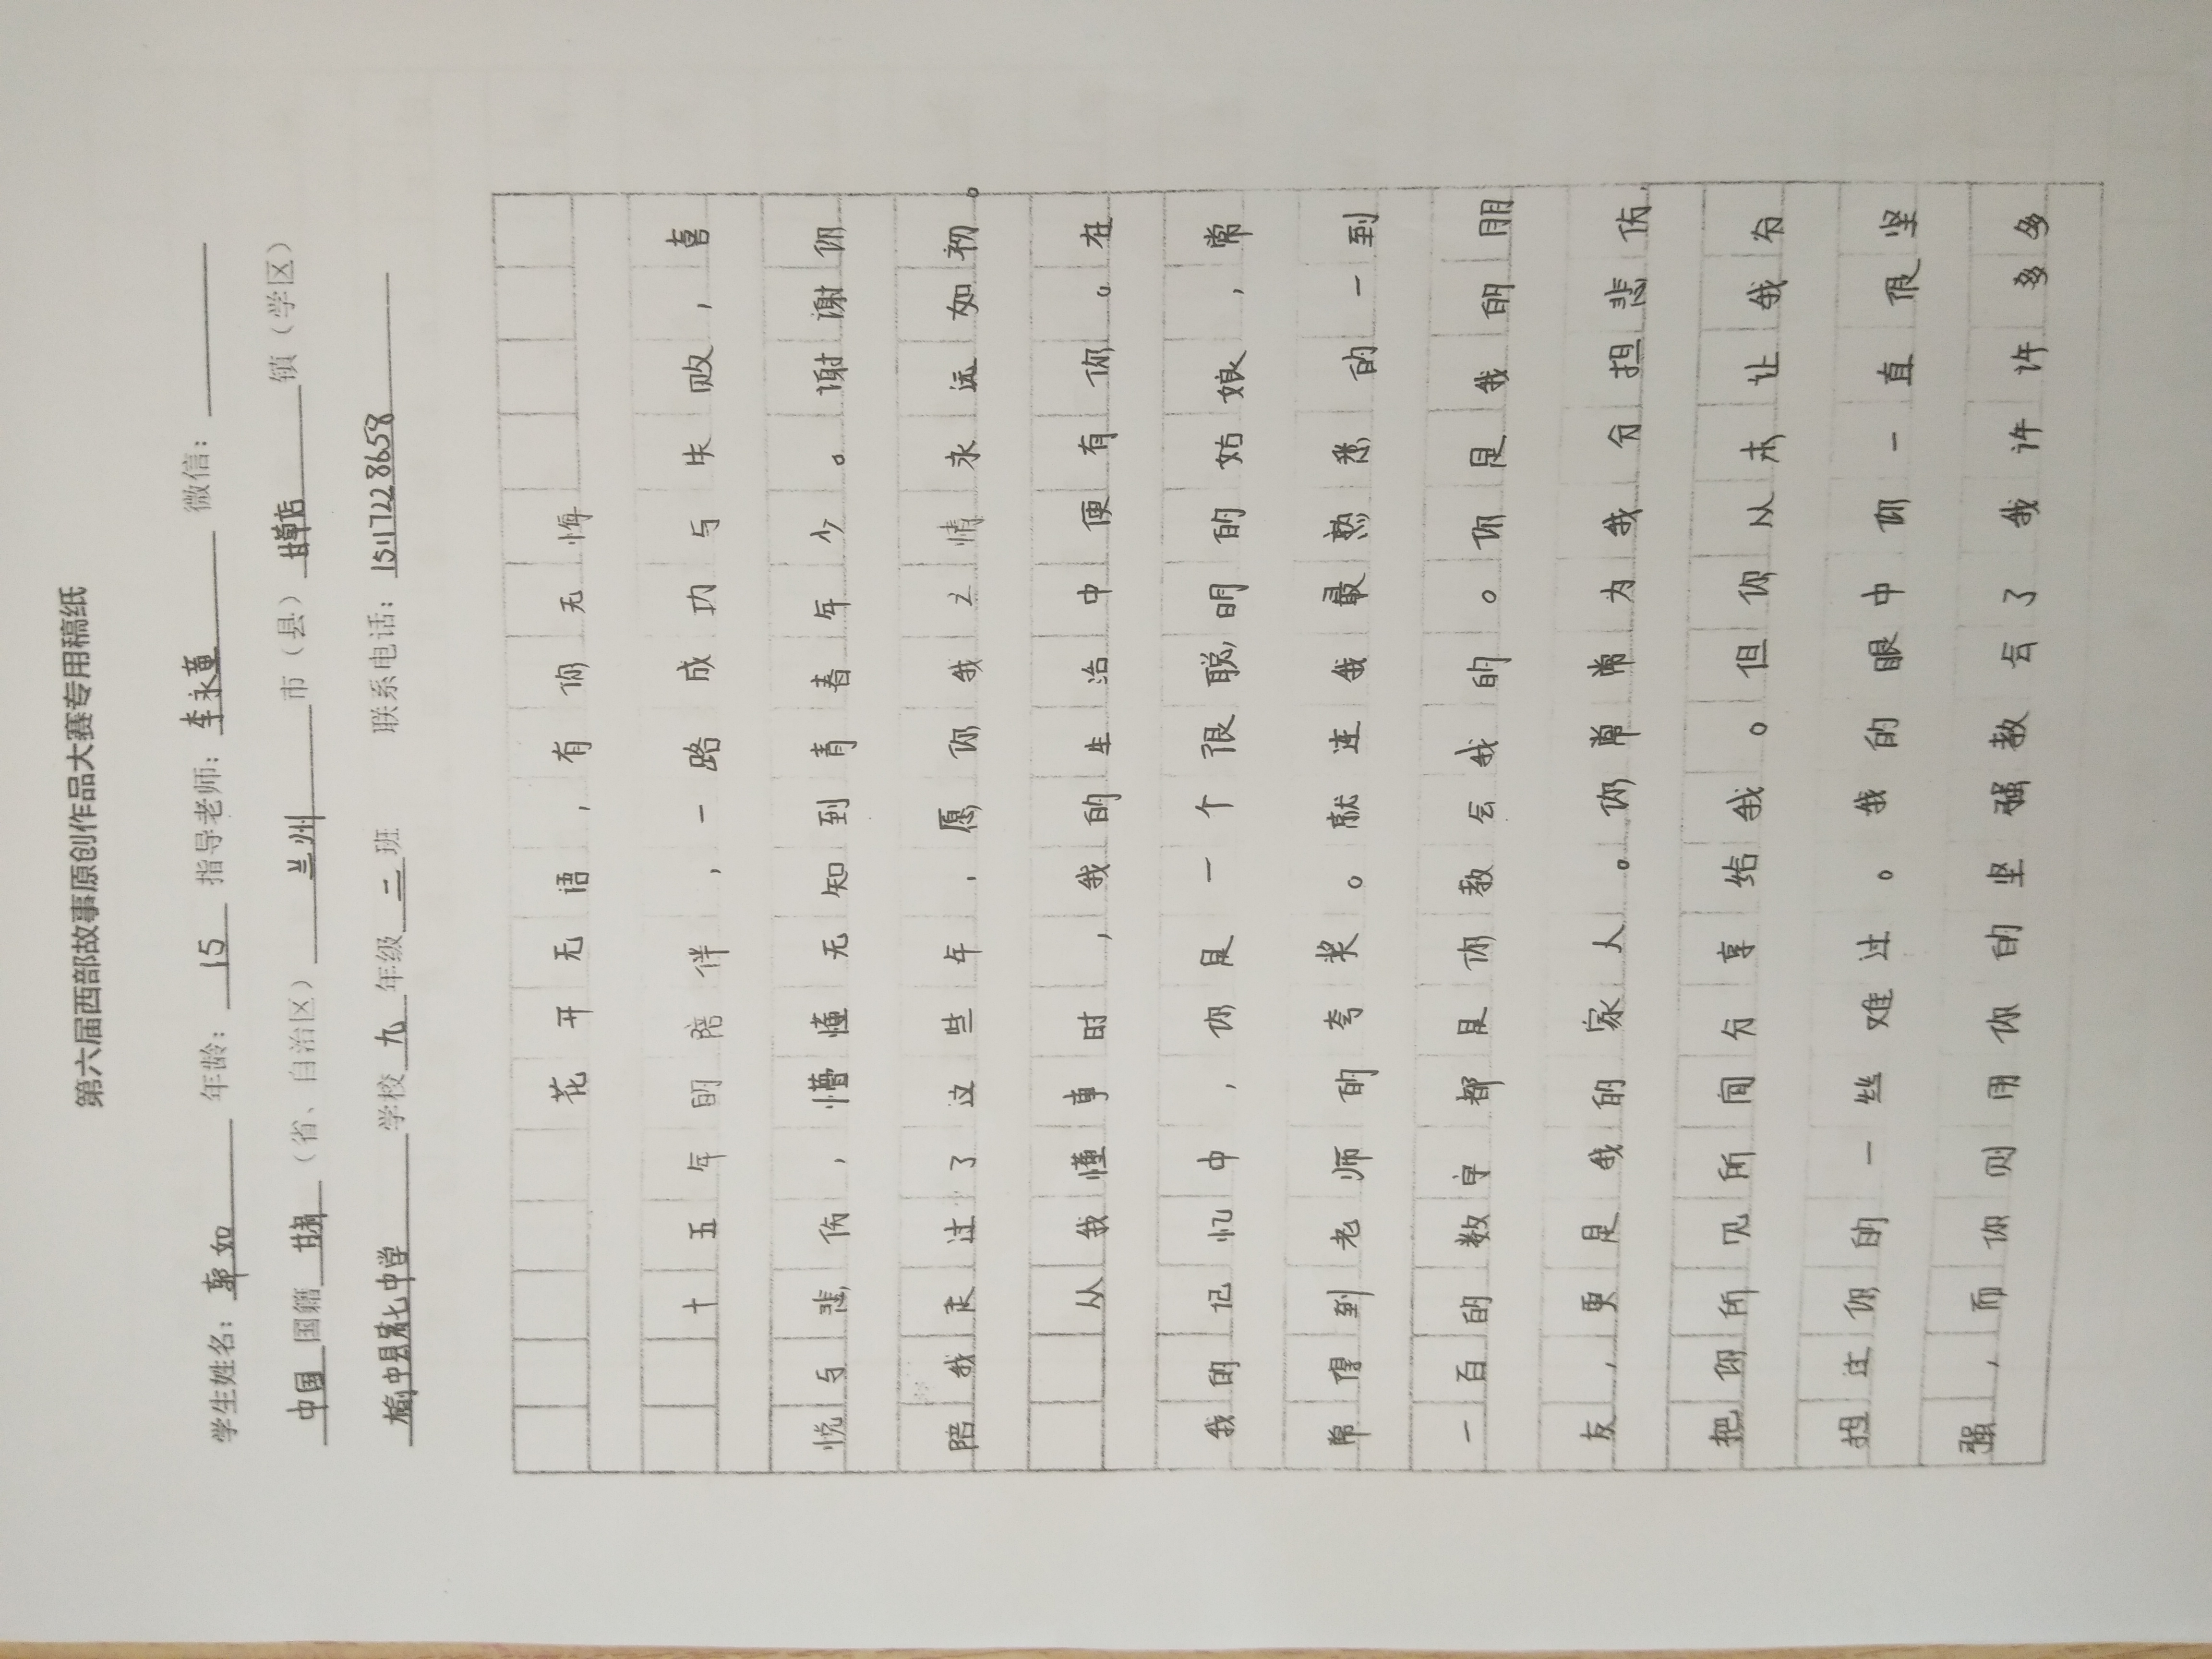 第六届西部故事原创作品大赛专用稿纸
学生姓名：郭如 年龄：15 指导老师：李永童 微信：
中国 国籍 甘肃 （省、自治区） 兰州 市（县） 韩店 镇（学区）
榆中县第七中学 学校 九 年级 二 班 联系电话：15117228658
花开无语，有你无悔
十五年的陪伴，一路成功与失败，喜
悦与悲伤，懵懂无知到青春年少。谢谢你
陪我走过了这些年，愿你我之情永远如初。
从我懂事时，我的生活中便有你。在
我的记忆中，你是一个很聪明的姑娘，常
常得到老师的夸奖。就连我最熟悉的一到
一百的数字都是你教会我的。你是我的朋
友，更是我的家人。你常常为我分担悲伤，
把你所见所闻分享给我。但你从未让我分
担过你的一丝难过。我的眼中你一直很坚
强，而你则用你的坚强教会了我许许多多